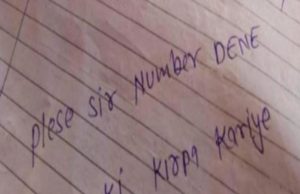 Plese sir Number DENE
ki KIRPA Kariye